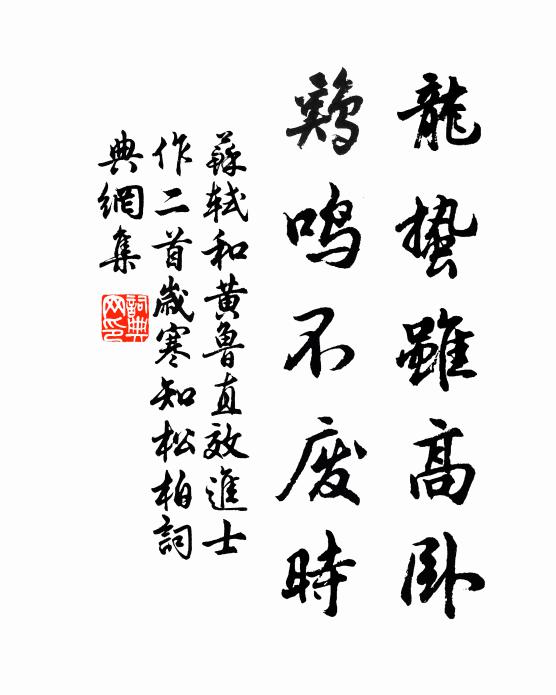 龍蟄雖高卧
鷄鳴不废時
蘇軾和黄魯直效進士
作二首歲寒知松柏詞
典網集
詞典網印